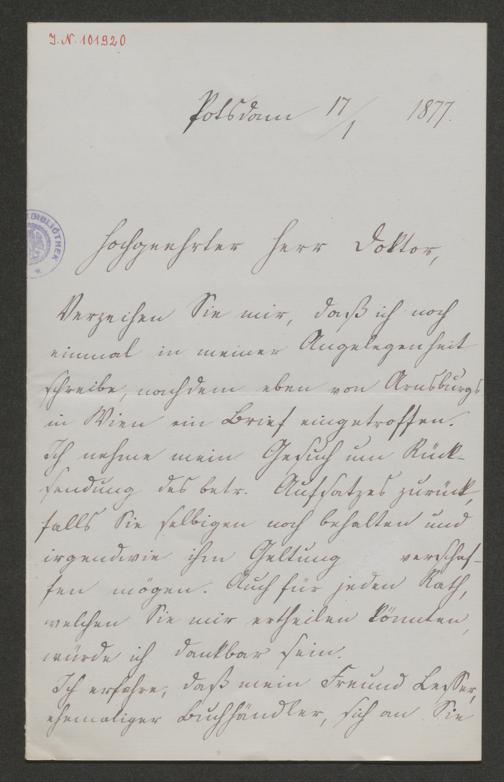 J. N. 101920
BIBLIOTHEK
Potsdam 17/1 1877.
Hochgeehrter Herr Doktor,
Verzeihen Sie mir, daß ich noch
einmal in meiner Angelegenheit
schreibe, nachdem eben von Arnsburgs
in Wien ein Brief eingetroffen.
Ich nehme mein Gesuch um Rück-
sendung des betr. Aufsatzes zurück,
falls Sie selbigen noch behalten und
irgendwie ihm Geltung verschaf-
fen mögen. Auch für jeden Rath,
welchen Sie mir ertheilen könnten,
würde ich dankbar sein.
Ich erfahre, daß mein Freund Lesser,
ehemaliger Buchhändler, sich an Sie